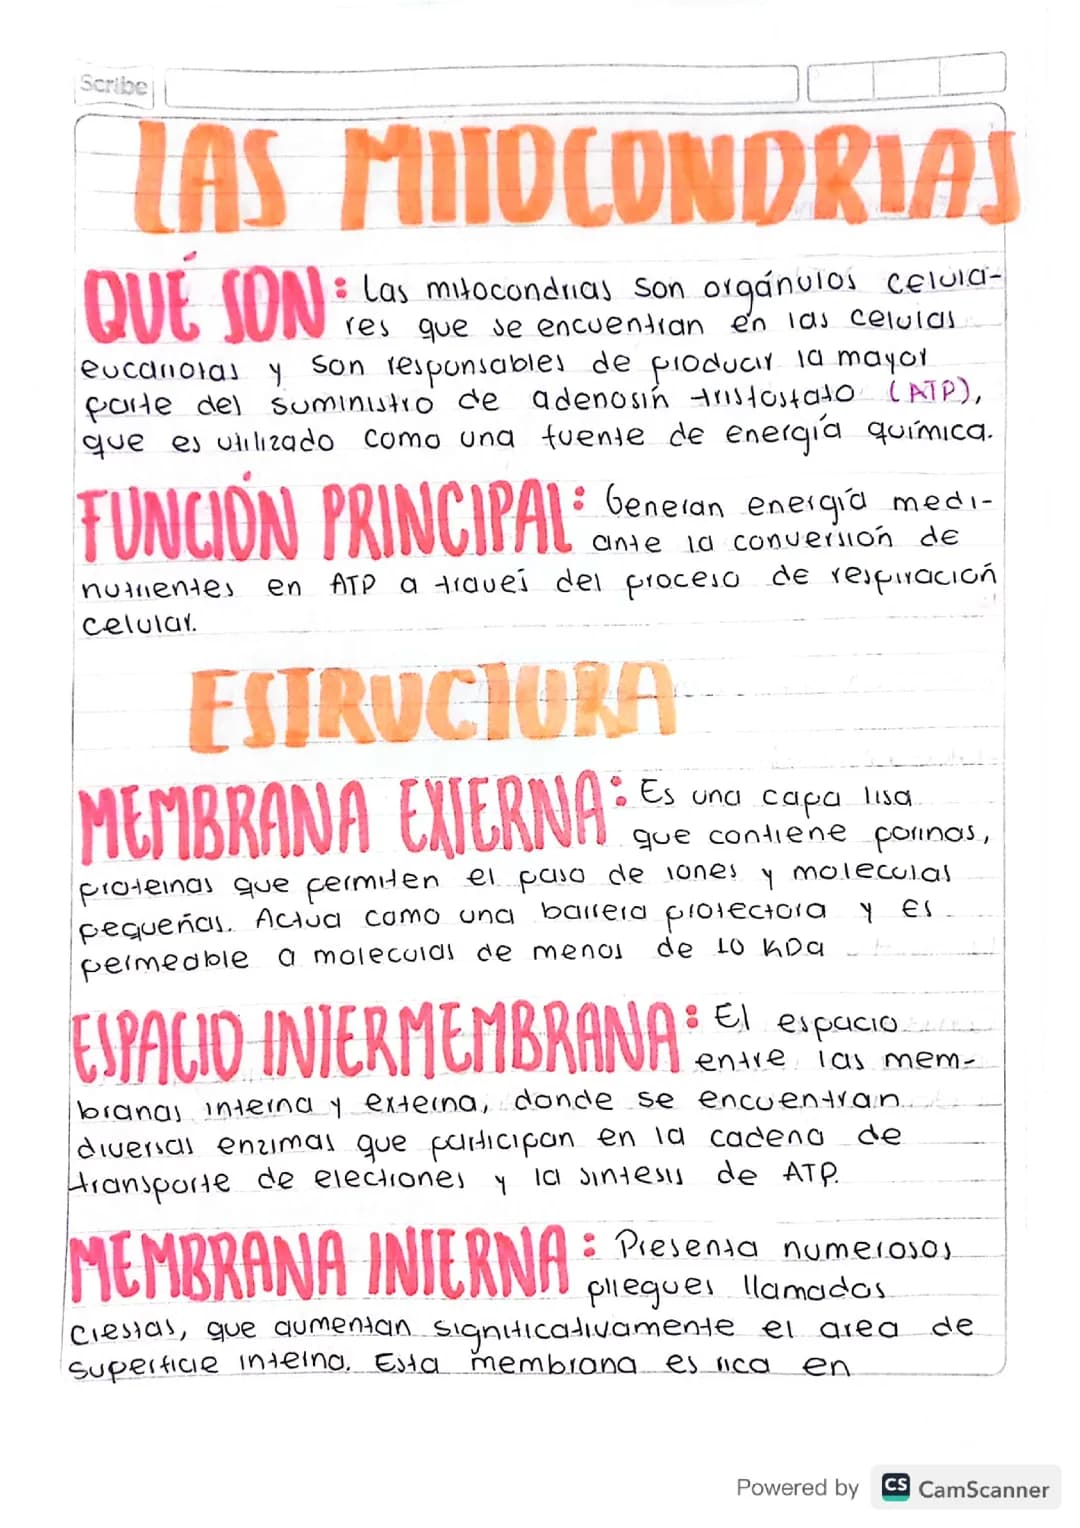 Scribe
LAS MITOCONDRIAS
QUÉ SON: Las mitocondrias son orgánulos celula-
res que se encuentran en las celulas
eucariotas y son responsables de producir la mayor
parte del suministro de adenosin trisfosfato (ATP),
que es utilizado como una fuente de energía química.
FUNCIÓN PRINCIPAL: Generan energía medi-
ante la conversión de
nutrientes en ATP a través del proceso de respiración
celular.
ESTRUCTURA
MEMBRANA EXTERNA: Es una capa lisa
que contiene porinas,
proteinas que permiten el paso de iones y moleculas
pequeñas. Actua como una barrera protectora y es
permeable a moleculas de menos de 10 KDa
ESPACIO INTERMEMBRANA: El espacio
entre las mem-
branas interna y externa, donde se encuentran
diversas enzimas que participan en la cadena de
transporte de electrones y la sintesis de ATP.
MEMBRANA INTERNA: Presenta numerosos
pliegues llamados
crestas, que aumentan significativamente el area de
superficie interna. Esta membrana es rica en
Powered by CS CamScanner